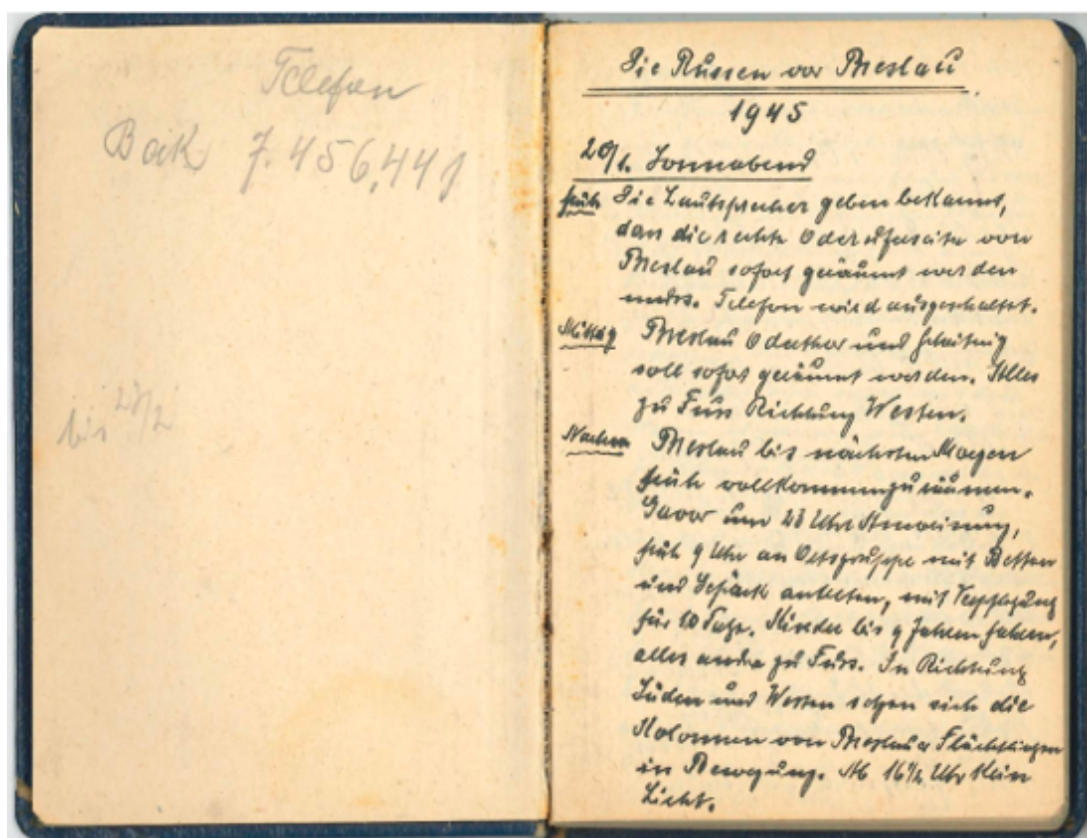 Telefon
Back 7.456,441
bis 27/2
Die Russen vor Breslau
1945
20/1. Sonnabend
früh Die Lautsprecher geben bekannt,
dass die rechte Oderuferseite von
Breslau sofort geräumt werden
muss. Telefon wird ausgeschaltet.
Mittag Breslau Oderthor und
soll sofort geräumt werden. Alles
zu Fuss Richtung Westen.
Nachm Breslau bis nächsten Morgen
früh vollkommen zu räumen.
Uhr Anweisung,
früh 9 Uhr an Ortsgruppe mit Betten
und Gepäck antreten, mit Verpflegung
für 10 Tage. Kinder bis 9 Jahren fahren,
alles andre zu Fuss. In Richtung
Süden und Westen setzen sich die
Kolonnen von Breslauer Flüchtlingen
in Bewegung. Ab 16½ Uhr kein
Licht.